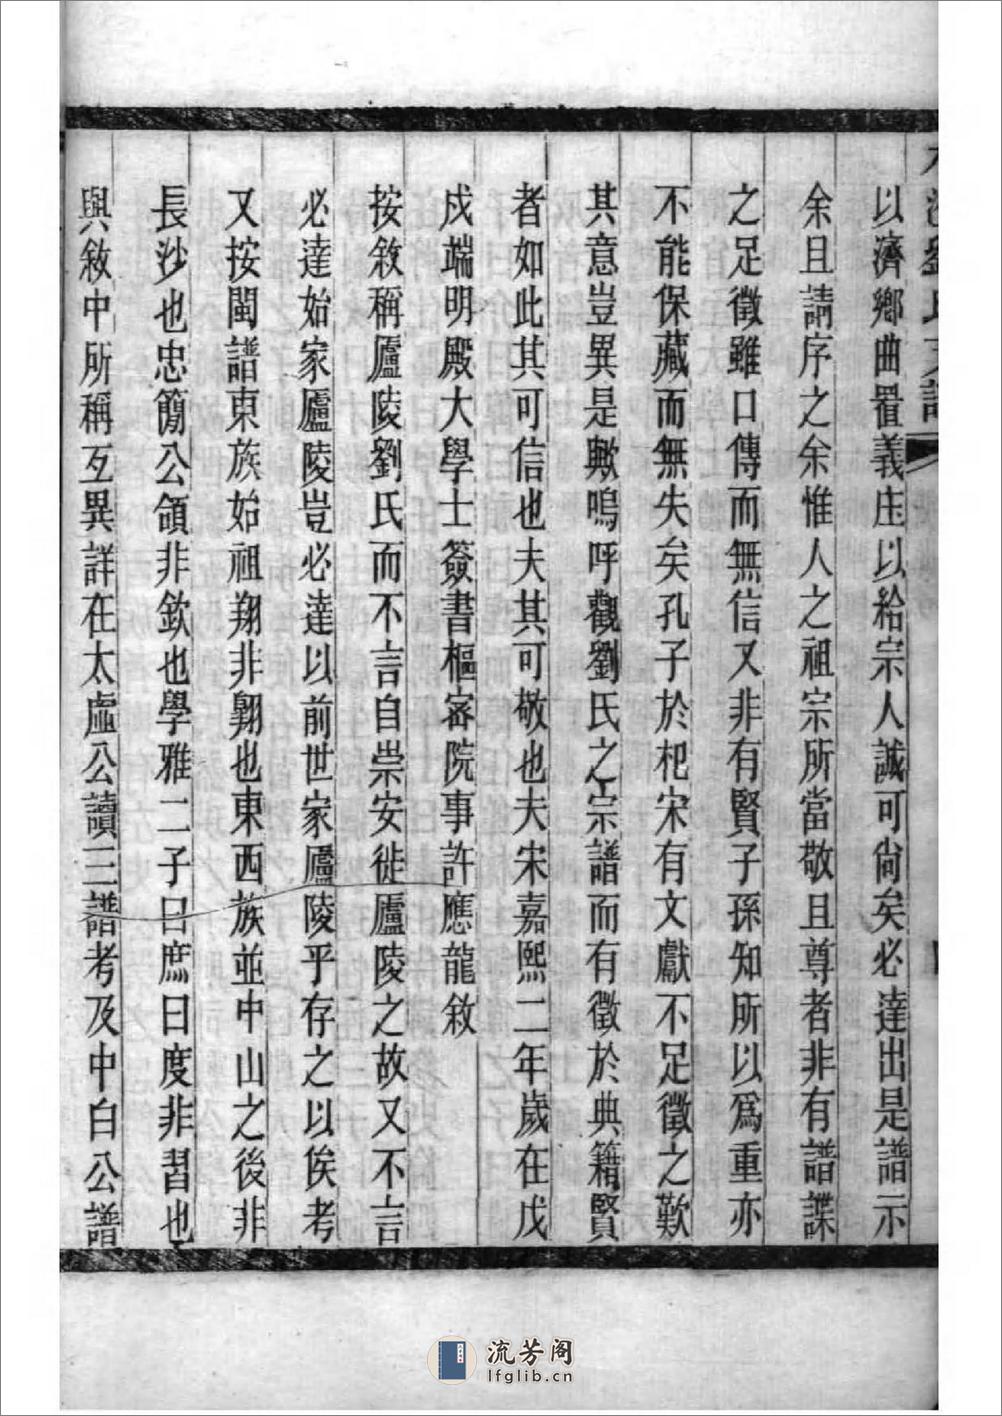 劉氏支譜
以濟鄉曲置義庄以給宗人誠可尙矣必達出是譜示
余且請序之余惟人之祖宗所當敬且尊者非有譜諜
之足徵雖口傳而無信又非有賢子孫知所以爲重亦
不能保藏而無失矣孔子於杞宋有文獻不足徵之歎
其意豈異是歟嗚呼觀劉氏之宗譜而有徵於典籍賢
者如此其可信也夫其可敬也夫宋嘉熙二年歲在戊
戍端明殿大學士簽書樞宻院事許應龍敘
按敘稱廬陵劉氏而不言自崇安徙廬陵之故又不言
必達始家廬陵豈必達以前世家廬陵乎存之以俟考
又按閩譜東族始祖翔非翺也東西族並中山之後非
長沙也忠簡公頜非欽也學雅二子曰庶曰度非習也
與敘中所稱互異詳在太虛公讀三譜考及中白公譜
流芳阁
lfglib.cn